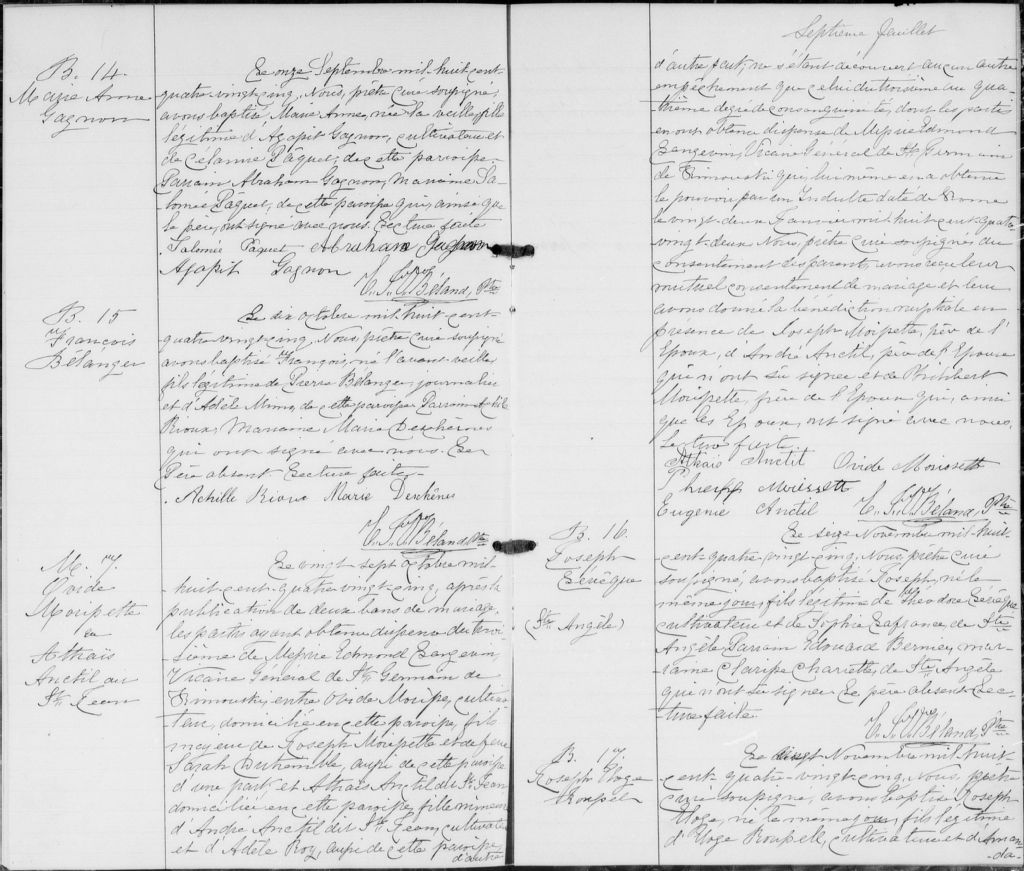 B. 14.
Marie Anne
Gagnon
Le onze Septembre mil-huit cent-
quatre vingt cinq, Nous, prêtre curé soussigné,
avons baptisé Marie Anne, née la veille, fille
légitime d'Agapit Gagnon, cultivateur et
de Célanire Pâquet, de cette paroisse.
Parrain Abraham Gagnon, Marraine Sa-
lomée Paquet, de cette paroisse qui, ainsi que
le père, ont signé avec nous. Lecture faite
Salomée Paquet Abraham Gagnon
Agapit Gagnon
Béland, Ptre
B. 15
François
Bélanger
Le dix Octobre mil huit cent-
quatre vingt cinq, Nous prêtre curé soussigné
avons baptisé François, né l'avant-veille,
fils légitime de Pierre Bélanger, journalier
et d'Adèle de cette paroisse Parrain Achille
Rioux, Marraine Marie Deschênes
qui ont signé avec nous. Le
Père absent Lecture faite
Achille Rioux Marie Deschênes
Béland, Ptre
M. 7.
Ovide
Morissette
&
Athaïs
Anctil dit
St. Jean
Le vingt sept Octobre mil-
huit-cent-quatre vingt cinq, après la
publication de deux bans de mariage,
les parties ayant obtenu dispense du troi-
sième de Messire Edmond Langevin,
Vicaire Général de St. Germain de
Rimouski, entre Ovide Morisse, cultiva-
teur, domicilié en cette paroisse, fils
mineur de Joseph Morissette et de feue
Sarah Duhemble, aussi de cette paroisse
d'une part; et Athaïs Anctil dit St. Jean
domiciliée en cette paroisse, fille mineure
d'André Anctil dit St. Jean, cultivateur
et d'Adèle Roy, aussi de cette paroisse,
d'autre
Septième feuillet
d'autre part; ne s'étant découvert aucun autre
empêchement que celui du troisième au qua-
trième degré de consanguinité, dont les parties
en ont obtenu dispense de Messire Edmond
Langevin, Vicaire Général de St. Germain
de Rimouski qui, lui même en a obtenu
le pouvoir par un Indulte daté de Rome
le vingt-deux Janvier mil-huit-cent-quatre-
vingt-deux Nous, prêtre curé soussigné, du
consentement des parents, avons reçu leur
mutuel consentement de mariage et leur
avons donné la bénédiction nuptiale en
présence de Joseph Morissette, père de l'
Epoux, d'André Anctil, père de l'Epouse
qui n'ont su signer et de Philibert
Morissette, frère de l'Epoux qui, ainsi
que les Epoux, ont signé avec nous.
Lecture faite
Athais Anctil Ovide Morissett
Morissett
Eugenie Anctil Béland, Ptre
B. 16.
Joseph
Levêque
(Ste Angèle)
Le seize Novembre mil huit-
cent-quatre-vingt cinq, Nous, prêtre curé
soussigné, avons baptisé Joseph, né le
même jour, fils légitime de Théodore Levêque
cultivateur et de Sophie Lafrance, de Ste
Angèle, Parrain Edouard Bernier, mar-
raine Clarisse Charette, de Ste Angèle
qui n'ont su signer Le père absent Lec-
ture faite.
Béland, Ptre
B. 17
Joseph Eloge
Roussel
Le vingt Novembre mil huit-
cent quatre-vingt-cinq, Nous, prêtre
curé soussigné, avons baptisé Joseph
Eloge, né le même jour, fils légitime
d'Eloge Roussell, cultivateur et d'Aman-
-da-